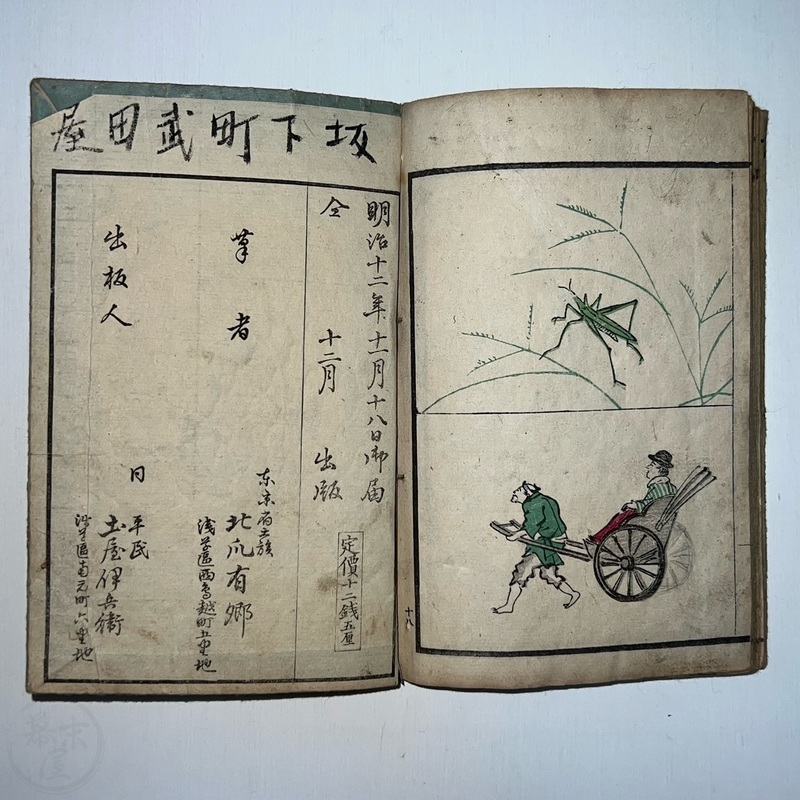 坂下町武田屋
明治十二年十一月十八日御届
仝 十二月 出版
定價十二銭五厘
筆者
東京府士族
北爪有郷
浅草區西鳥越町五番地
出板人
同 平民
土屋伊兵衛
浅草區南元町六番地
十八
幕末屋